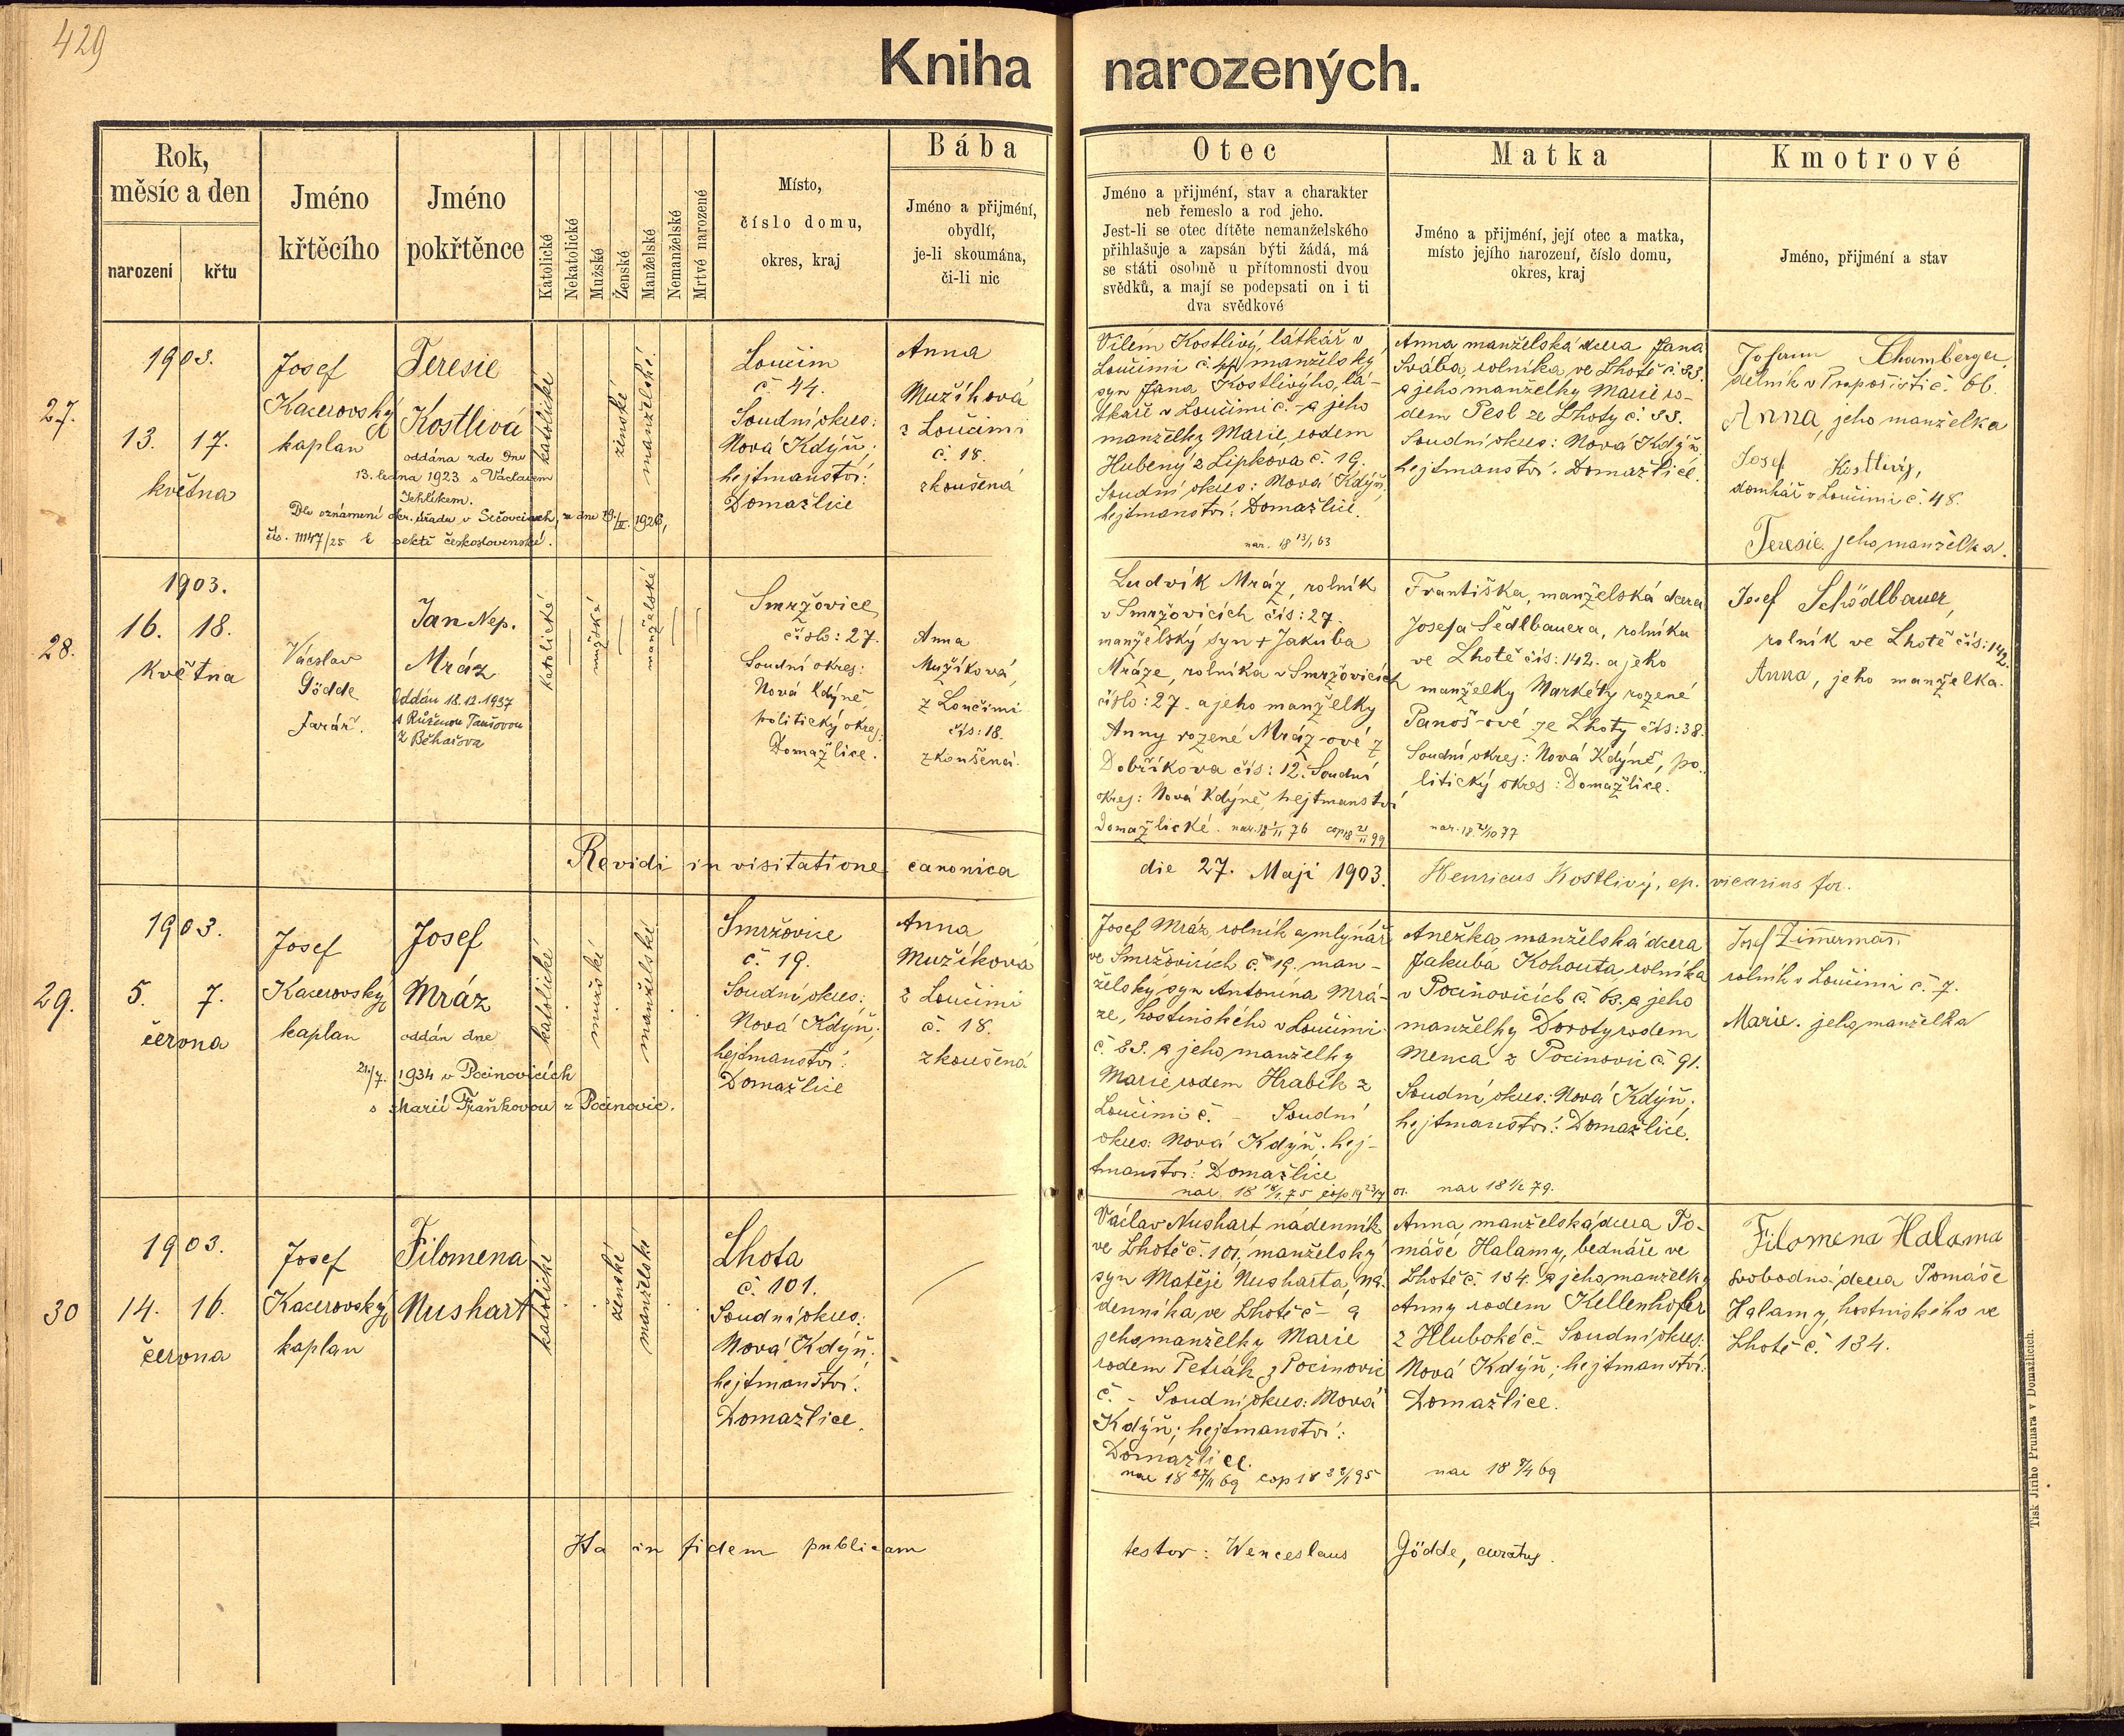 429
Kniha narozených.
Rok,
měsíc a den
narození
křtu
Jméno
křtěcího
Jméno
pokřtěnce
Katolické
Nekatolické
Mužské
Ženské
Manželské
Nemanželské
Mrtvé narozené
Místo,
číslo domu,
okres, kraj
Bába
Jméno a přijmení,
obydlí,
je-li skoumána,
či-li nic
Otec
Jméno a přijmení, stav a charakter
neb řemeslo a rod jeho.
Jest-li se otec dítěte nemanželského
přihlašuje a zapsán býti žádá, má
se státi osobně u přítomnosti dvou
svědků, a mají se podepsati on i ti
dva svědkové
Matka
Jméno a přijmení, její otec a matka,
místo jejího narození, číslo domu,
okres, kraj
Kmotrové
Jméno, přijmení a stav
27.
1903.
13. 17.
května
Josef
Kacerovský
kaplan
Teresie
Kostlivá
oddána zde dne
13. ledna 1923 s Václavem
Jehlíkem.
Dle oznámení okr. úřadu v Sečovciach, ze dne 19./II. 1926,
čís. 11147/25 k sektě československé.
katolické
ženské
manželské
Loučim
č 44.
Soudní okres:
Nová Kdýň;
hejtmanství:
Domažlice
Anna
Mužíková
z Loučimi
č. 18.
zkoušená
Vilém Kostlivý, látkář v
Loučimi č. 44 manželský
syn Jana Kostlivýho, lá-
tkáře v Loučimi č. a jeho
manželky Marie, rodem
Hubený z Lipkova č. 19.
Soudní okres: Nová Kdýň;
hejtmanství: Domažlice.
nar. 18 13/1 63
Anna manželská dcera Jana
Svába, rolníka ve Lhotě č. 33.
a jeho manželky Marie ro-
dem Pesl ze Lhoty č. 33.
Soudní okres: Nová Kdýň,
hejtmanství: Domažlice.
Johann Schamberger,
dělník v Prapořišti č. 66.
Anna, jeho manželka
Josef Kostlivý,
domkář v Loučimi č. 48.
Teresie. jeho manželka.
28.
1903.
16. 18.
května
Václav
Gödde
farář.
Jan Nep.
Mráz
Oddán 18.12.1937
s Růženou Taušovou
z Běhařova
katolické
mužské
manželské
Smržovice,
číslo: 27.
Soudní okres:
Nová Kdýně,
politický okres:
Domažlice.
Anna
Mužíková,
z Loučimi
čís: 18.
zkoušená.
Ludvík Mráz, rolník
v Smržovicích čís: 27.
manželský syn + Jakuba
Mráze, rolníka v Smržovicích
číslo: 27. a jeho manželky
Anny rozené Mráz-ové z
Dobříkova čís: 12. Soudní
okres: Nová Kdýně, hejtmanství
Domažlické.
Františka, manželská dcera
Josefa Šedlbauera, rolníka
ve Lhotě čís: 142. a jeho
manželky Markéty rozené
Panoš-ové ze Lhoty čís: 38.
Soudní okres: Nová Kdýně, po-
litický okres: Domažlice.
nar. 18 21/10 77
Josef Schödlbauer,
rolník ve Lhotě čís: 142.
Anna, jeho manželka.
Revidi in visitatione canonica die 27. Maji 1903. Henricus Kostlivý, ep. vicarius for.
29.
1903.
5. 7.
června
Josef
Kacerovský
kaplan
Josef
Mráz
oddán dne
24/7. 1934 v Pocinovicích
s Marií Fraňkovou z Pocinovic.
katolické
mužské
manželské
Smržovice
č. 19.
Soudní okres:
Nová Kdýň;
hejtmanství:
Domažlice
Anna
Mužíková
z Loučimi
č. 18.
zkoušená
Josef Mráz, rolník a mlynář
ve Smržovicích č. 19. man-
želský syn Antonína Mrá-
ze, hostinského v Loučimi
č. 23. a jeho manželky
Marie rodem Hrabík z
Loučimi č. - Soudní
okres: Nová Kdýň; hej-
tmanství: Domažlice
Anežka manželská dcera
Jakuba Kohouta rolníka
v Pocinovicích č. 63. a jeho
manželky Doroty rodem
Menca z Pocinovic č. 91.
Soudní okres: Nová Kdýň;
hejtmanství: Domažlice.
Josef Zimmermann
rolník v Loučimi č. 7.
Marie. jeho manželka
30
1903.
14. 16.
června
Josef
Kacerovský
kaplan
Filomena
Nushart
katolické
ženské
manželské
Lhota
č. 101.
Soudní okres:
Nová Kdýň;
hejtmanství:
Domažlice.
Václav Nushart nádenník
ve Lhotě č. 101, manželský
syn Matěje Nusharta, ná-
denníka ve Lhotě č - a
jeho manželky Marie
rodem Petrák z Pocinovic
č. - Soudní okres: Nová
Kdýň; hejtmanství:
Domažlice.
nar 18 27/11 69
Anna manželská dcera To-
máše Halamy, bednáře ve
Lhotě č. 134. a jeho manželky
Anny rodem Kellenhofer
z Hluboké č - Soudní okres:
Nová Kdýň; hejtmanství:
Domažlice.
nar 18 8/4 69
Filomena Halama
svobodná dcera Tomáše
Halamy, hostinského ve
Lhotě č. 134.
Ita in fidem publicam testor: Wenceslaus Gödde, curatus.
Tisk Jiřího Prunara v Domažlicích.